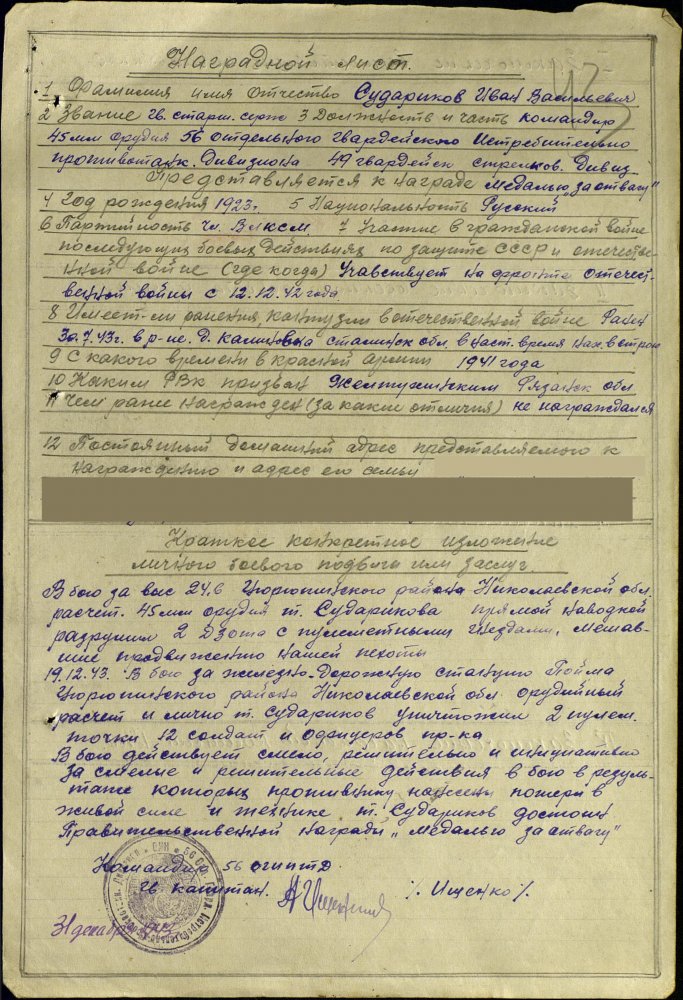 Наградной лист.
1 Фамилия имя отчество Судариков Иван Васильевич
2 Звание гв. старш. серж 3 Должность и часть командир
45мм орудия 56 отдельного гвардейского Истребительно
противотанк. Дивизиона 49 гвардейск стрелков. Дивиз.
Представляется к награде медалью „За отвагу"
4 Год рождения 1923г. 5 Национальность Русский
6 Партийность чл. Влксм. 7 Участие в гражданской войне
последующих боевых действиях по защите СССР и отечестве-
нной войне (где когда) Учавствует на фронте отечест-
венной войны с 12.12.42 года.
8 Имеет-ли ранения, контузии в отечественной войне Ранен
30.7.43г. в р-не. д. Калиновка сталинск обл. в наст. время нах. в строю
9 С какого времени в красной армии 1941 года
10 Каким РВК призван Желтухинским Рязанск обл
11 Чем ранее награжден (за какие отличия) не награждался
12 Постоянный домашний адрес представляемого к
награждению и адрес его семьи
Краткое конкретное изложение
личного боевого подвига или заслуг.
В бою за выс 24.6 Цюрюпинского района Николаевской обл.
расчет. 45мм орудия т. Сударикова прямой наводкой
разрушил 2 Дзота с пулеметными гнездами, мешав-
шие продвижению нашей пехоты
19.12.43. В бою за железно-Дорожную станцию Пойма
Цюрюпинского района Николаевской обл орудийный
расчет и лично т. Судариков уничтожил 2 пулем.
точки 12 солдат и офицеров пр-ка
В бою действует смело, решительно и инициативно
За смелые и решительные действия в бою в резуль-
тате которых противнику нанесены потери в
живой силе и технике т. Судариков достоин
Правительственной награды „медалью за отвагу"
Командир 56 огиптд
гв. капитан. /. Ищенко /.
31 декабря 1943